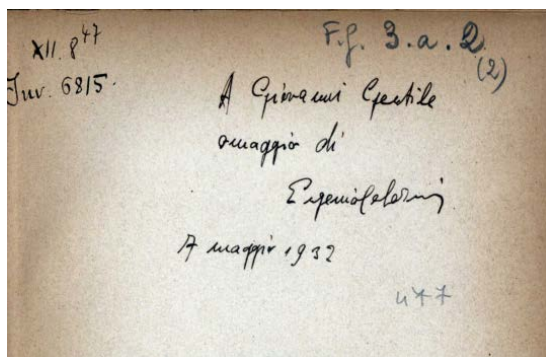 XII. 8 47
Inv. 6815.
F.g. 3.a.2
(2)
A Giovanni Gentile
omaggio di
Eugenio Colorni
7 maggio 1932
477